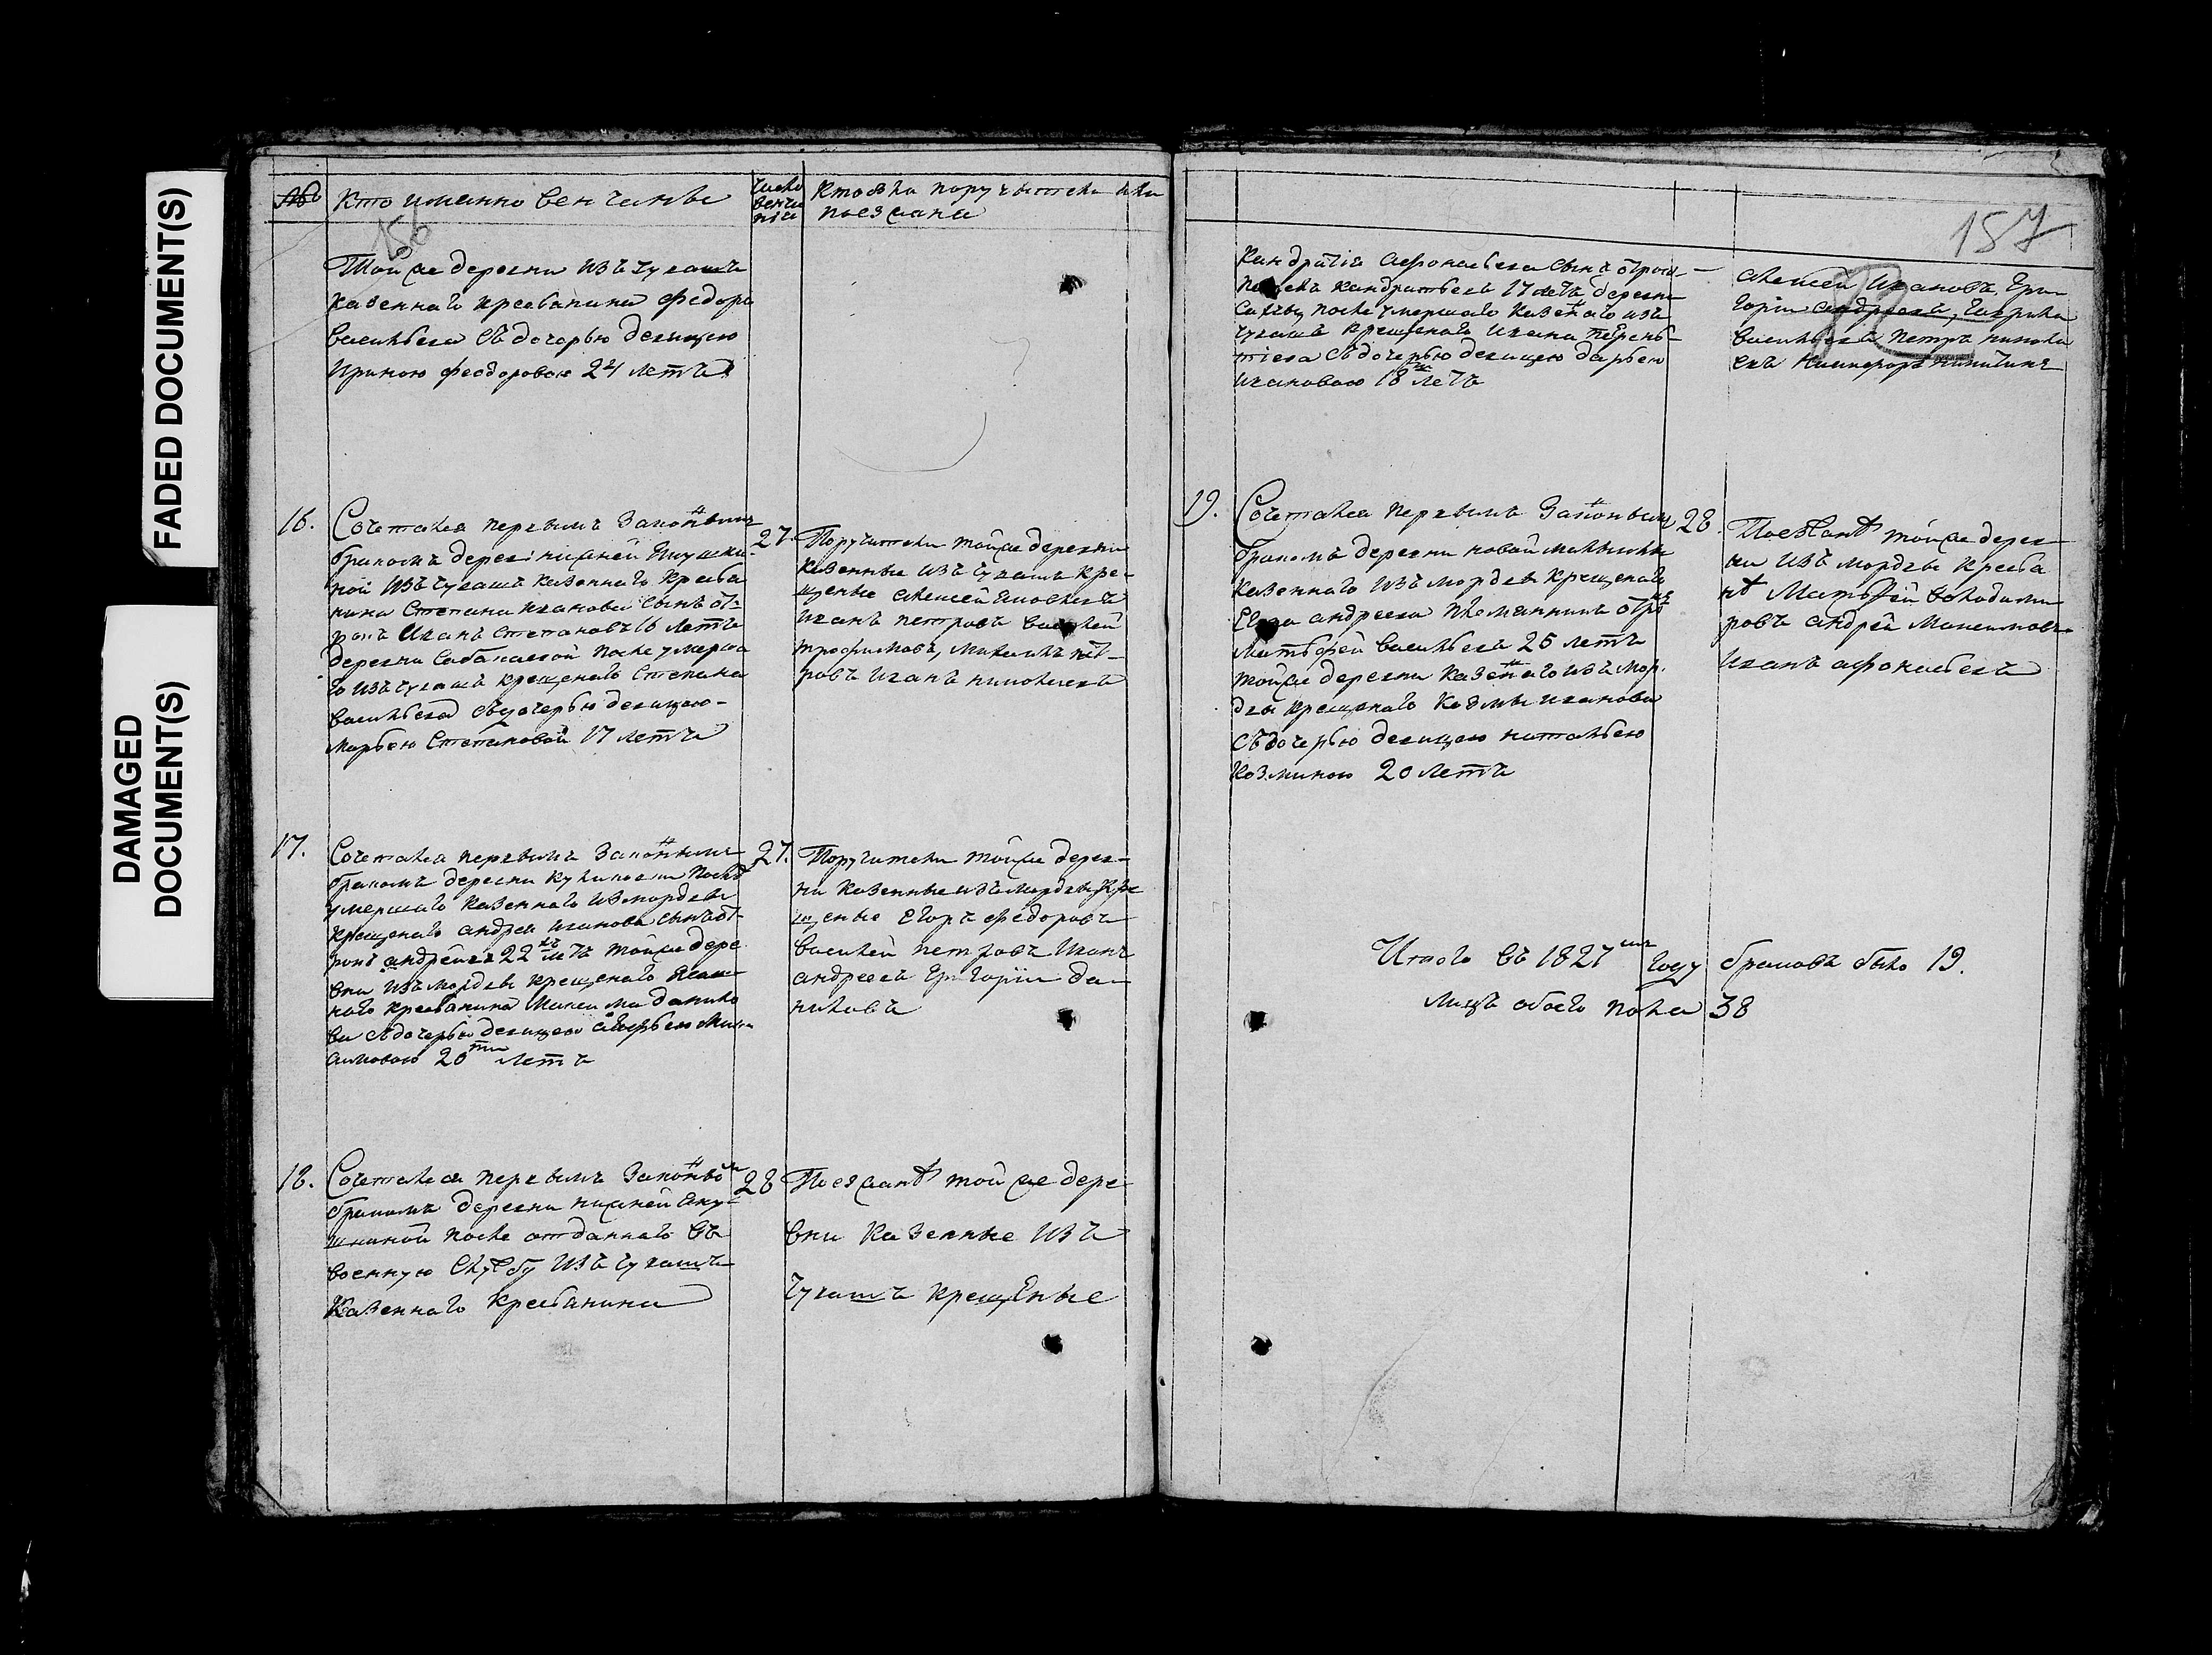 FADED DOCUMENT(S)
DAMAGED
DOCUMENT(S)
№ Кто именно венчаны
число
венча
нія
Кто были поручители или
поезжана
156
Той же деревни изъ чувашъ
казеннаго крестьянина Федора
Васильева съ дочерью девицею
Ириною Феодоровою 24 летъ
16. Сочетался первымъ законнымъ
бракомъ деревни нижней
ной изъ чувашъ казеннаго крестья
нина Степана Иванова сынъ от
рокъ Иванъ Степановъ 16 летъ
деревни после умерша
го изъ чувашъ крещенаго Степана
Васильева съ дочерью девицею
Марьею Степановой 17 летъ
27.
Поручители той же деревни
казенные изъ чувашъ кре-
щеные Алексей
Иванъ Петровъ Василей
Трофимовъ, Михаилъ Пет-
ровъ Иванъ Николаевъ
17. Сочетался первымъ законнымъ
бракомъ деревни после
умершаго казеннаго изъ мордвы
крещенаго Андрея Иванова сынъ от-
рокъ 22 летъ той же дере
вни изъ мордвы крещенаго
наго крестьянина Максима Данило
ва съ дочерью девицею Мак
симовою 20ти летъ
27.
Поручители той же дерев-
ни казенные изъ мордвы кре
щеные Егоръ Федоровъ
Василей Петровъ Иванъ
Андреевъ Григорій Да-
ниловъ
18. Сочетался первымъ законнымъ
бракомъ деревни нижней
после отданнаго въ
военную службу изъ чувашъ
казеннаго крестьянина
28
Поезжанѣ той же дере
вни казенные изъ
чувашъ крещеные
157
Кандратія Афонасьева сынъ отрок
Кандратьевъ 17 летъ деревни
после умершаго казеннаго изъ
чувашъ крещенаго Ивана
съ дочерью девицею Дарьею
Ивановою 18 летъ
Алексей Ивановъ, Гри
горій Андреевъ, Гаврила
Васильевъ Петръ Никола
евъ Никифоръ Никитинъ
19. Сочетался первымъ законнымъ
бракомъ деревни новой
казеннаго изъ мордвы крещенаго
Андреева племянникъ отро
Матвей Васильевъ 25 летъ
той же деревни казеннаго изъ мор-
двы крещенаго Козмы Иванова
съ дочерью девицею Натальею
Козминою 20 летъ
28.
Поезжанѣ той же дерев-
ни изъ мордвы крестья
нѣ Матвей Володими
ровъ Андрей Максимовъ
Иванъ Афонасьевъ
Итого въ 1827мъ году браковъ было 19.
лицъ обоего пола 38